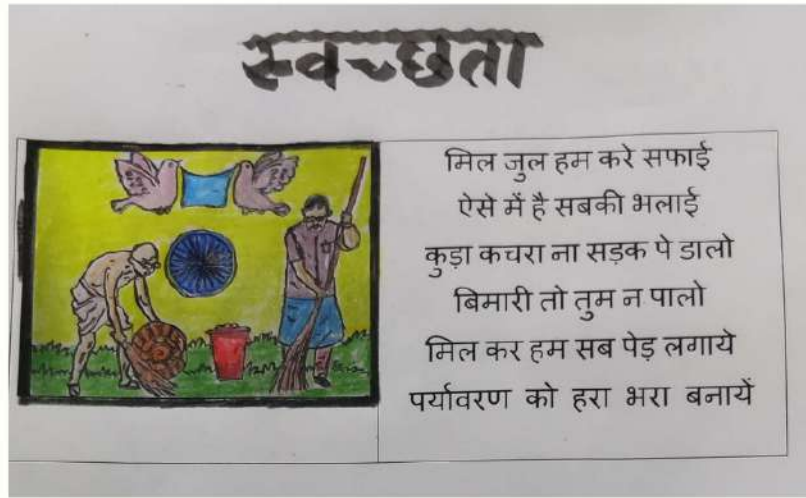 स्वच्छता
मिल जुल हम करे सफाई
ऐसे में है सबकी भलाई
कुड़ा कचरा ना सड़क पे डालो
बिमारी तो तुम न पालो
मिल कर हम सब पेड़ लगाये
पर्यावरण को हरा भरा बनायें